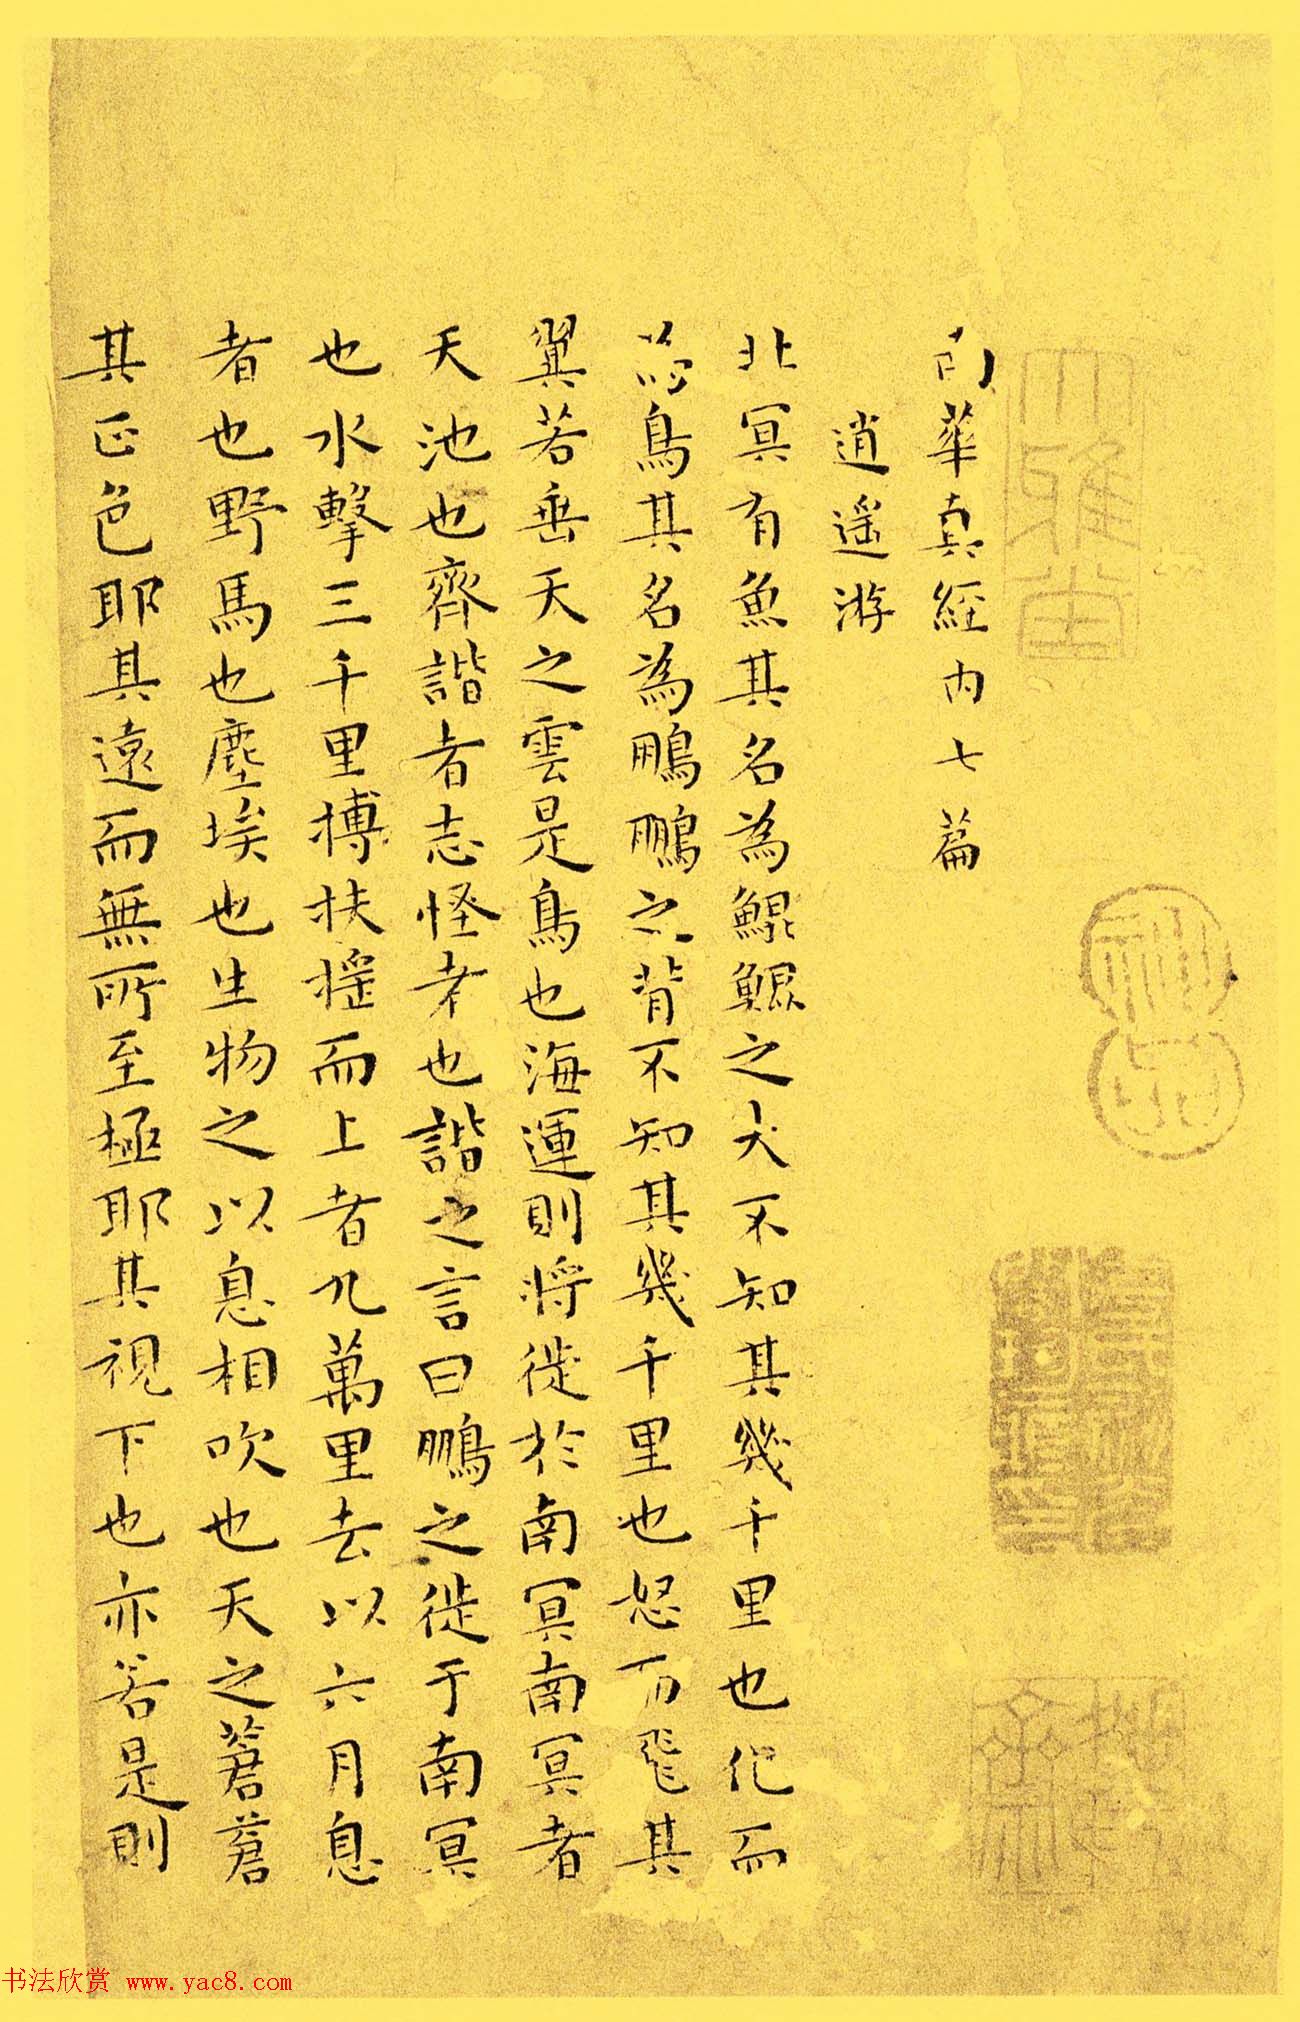 南華真經內七篇
逍遥游
北冥有魚其名為鯤鯤之大不知其幾千里也化而
為鳥其名為鵬鵬之背不知其幾千里也怒而飛其
翼若垂天之雲是鳥也海運則將徙於南冥南冥者
天池也齊諧者志怪者也諧之言曰鵬之徙于南冥
也水擊三千里搏扶搖而上者九萬里去以六月息
者也野馬也塵埃也生物之以息相吹也天之蒼蒼
其正色耶其遠而無所至極耶其視下也亦若是則
书法欣赏 www.yac8.com